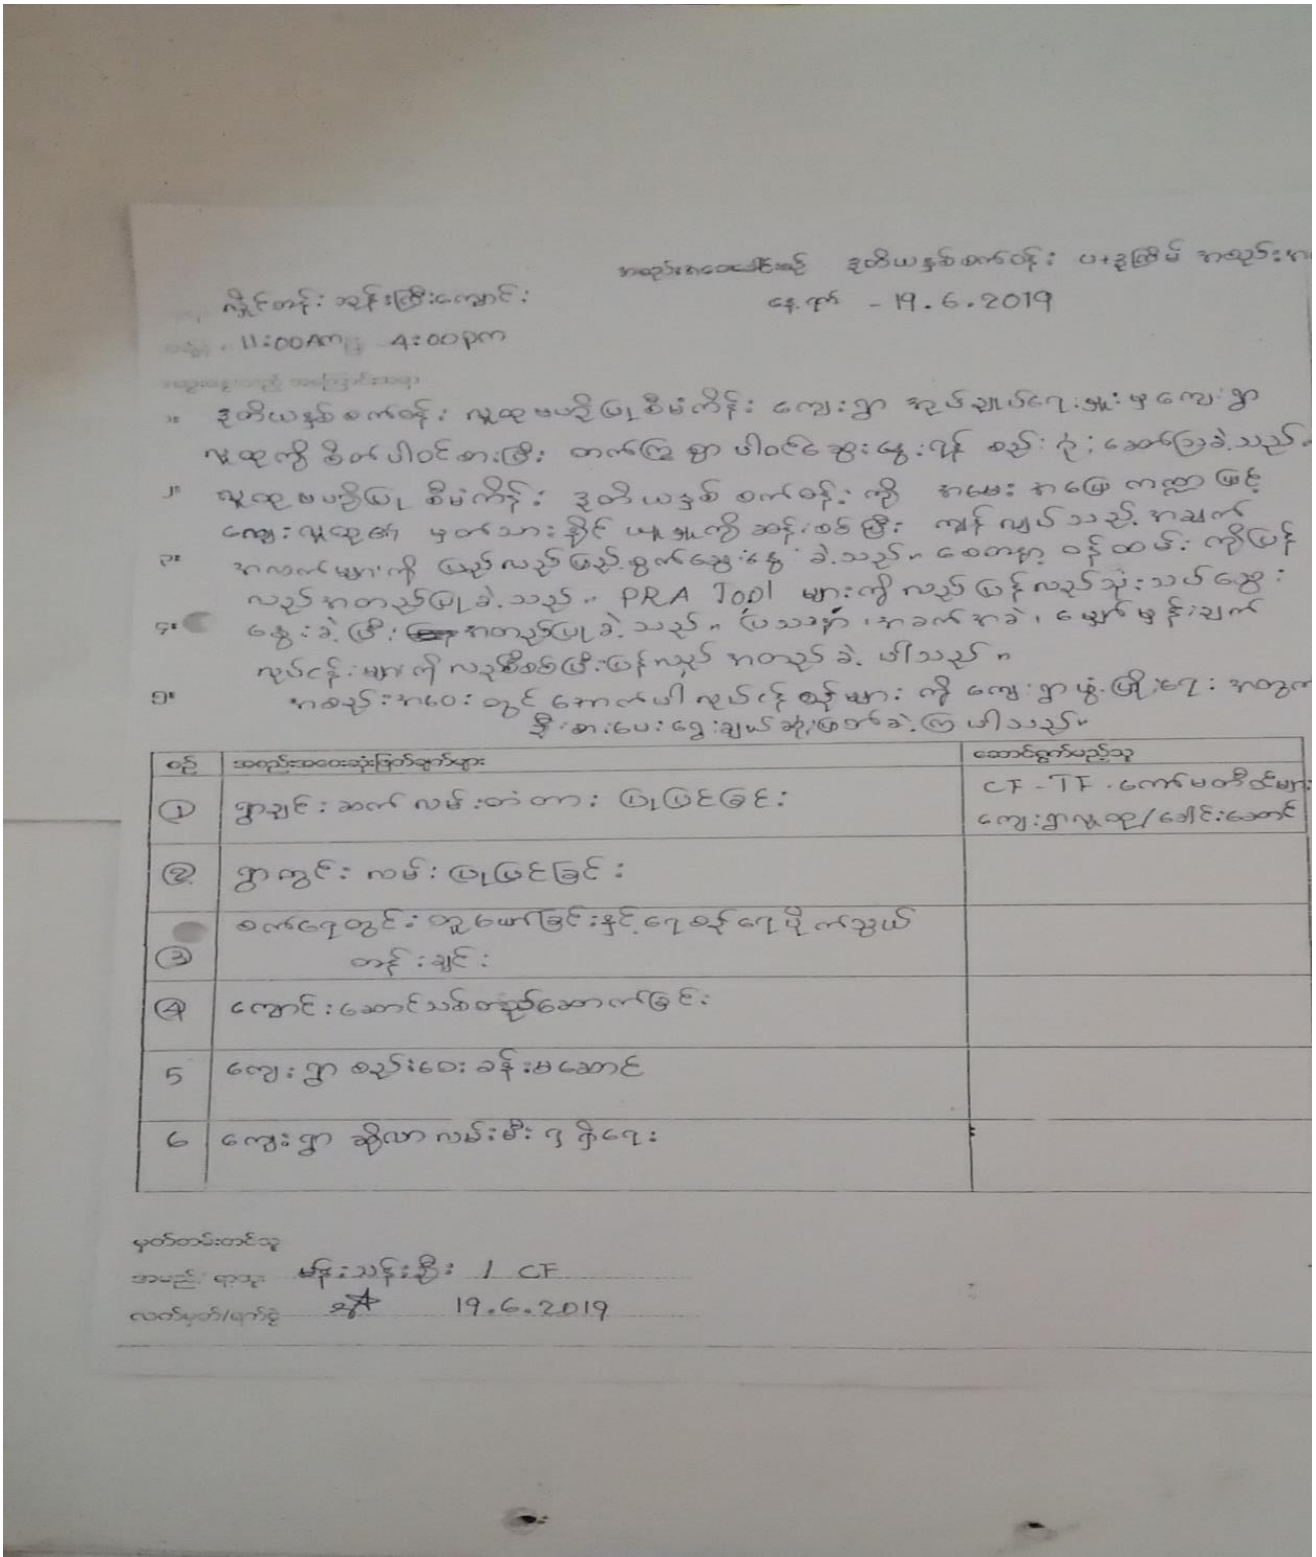 အစည်းအဝေးခေါင်းစဉ် ဒုတိယနှစ်စက်ဝန်း ပ+ဒုကြိမ် အစည်းအ
လှိုင်တန်း ဘုန်းကြီးကျောင်း
နေ့ရက် - 19.6.2019
11:00Am 4:00pm
၁။ ဒုတိယနှစ်စက်ဝန်း လူထုဗဟိုပြုစီမံကိန်း ကျေးရွာ အုပ်ချုပ်ရေးမှူးမှကျေးရွာ
လူထုကို စိတ်ပါဝင်စားပြီး တက်ကြွစွာ ပါဝင်ဆွေးနွေးရန် စည်းရုံးဆော်ဩခဲ့သည်။
၂။ လူထုဗဟိုပြု စီမံကိန်း ဒုတိယနှစ် စက်ဝန်းကို အမေး အဖြေ ကဏ္ဍဖြင့်
ကျေးလူထု၏ မှတ်သားနိုင်မှုကို ဆန်းစစ်ပြီး ကျန်လျှပ်သည့်အချက်
၃။ အလက်များကို ဖြည့်လည်ဖြည့်စွက်ဆွေးနွေးခဲ့သည်။ စေတနာ့ ဝန်ထမ်းကိုပြန်
လည်အတည်ပြုခဲ့သည်။ PRA Tool များကိုလည်းပြန်လည်သုံးသပ်ဆွေး
၄။ နွေးခဲ့ပြီး အတည်ပြုခဲ့သည်။ ပြဿနာ၊ အခက်အခဲ၊ မျှော်မှန်းချက်
လုပ်ငန်းများကိုလည်းစိစစ်ပြီးပြန်လည် အတည်ခဲ့ပါသည်။
၅။ အစည်းအဝေးတွင် အောက်ပါလုပ်ငန်းစဉ်များ ကို ကျေးရွာဖွံ့ဖြိုးရေး အတွက်
ဦးစားပေးရွေးချယ်ဆုံးဖြတ်ခဲ့ကြပါသည်။
စဉ် အစည်းအဝေးဆုံးဖြတ်ချက်များ ဆောင်ရွက်မည့်သူ
① ရွာချင်းဆက် လမ်းတံတား ပြုပြင်ခြင်း CF-TF-ကော်မတီဝင်များ
ကျေးရွာလူထု/ခေါင်းဆောင်
② ရွာတွင်း လမ်းပြုပြင်ခြင်း
စက်ရေတွင်းတူးဖော်ခြင်းနှင့်ရေစင်ရေပိုက်သွယ်
③ တန်းချင်း
④ ကျောင်းဆောင်သစ်တည်ဆောက်ခြင်း
5 ကျေးရွာ စည်းဝေးခန်းမဆောင်
6 ကျေးရွာ ဆိုလာလမ်းမီး ရရှိရေး
မှတ်တမ်းတင်သူ
အမည်/ရာထူး မန်းသန်းဦး / CF
လက်မှတ်/ရက်စွဲ 19.6.2019